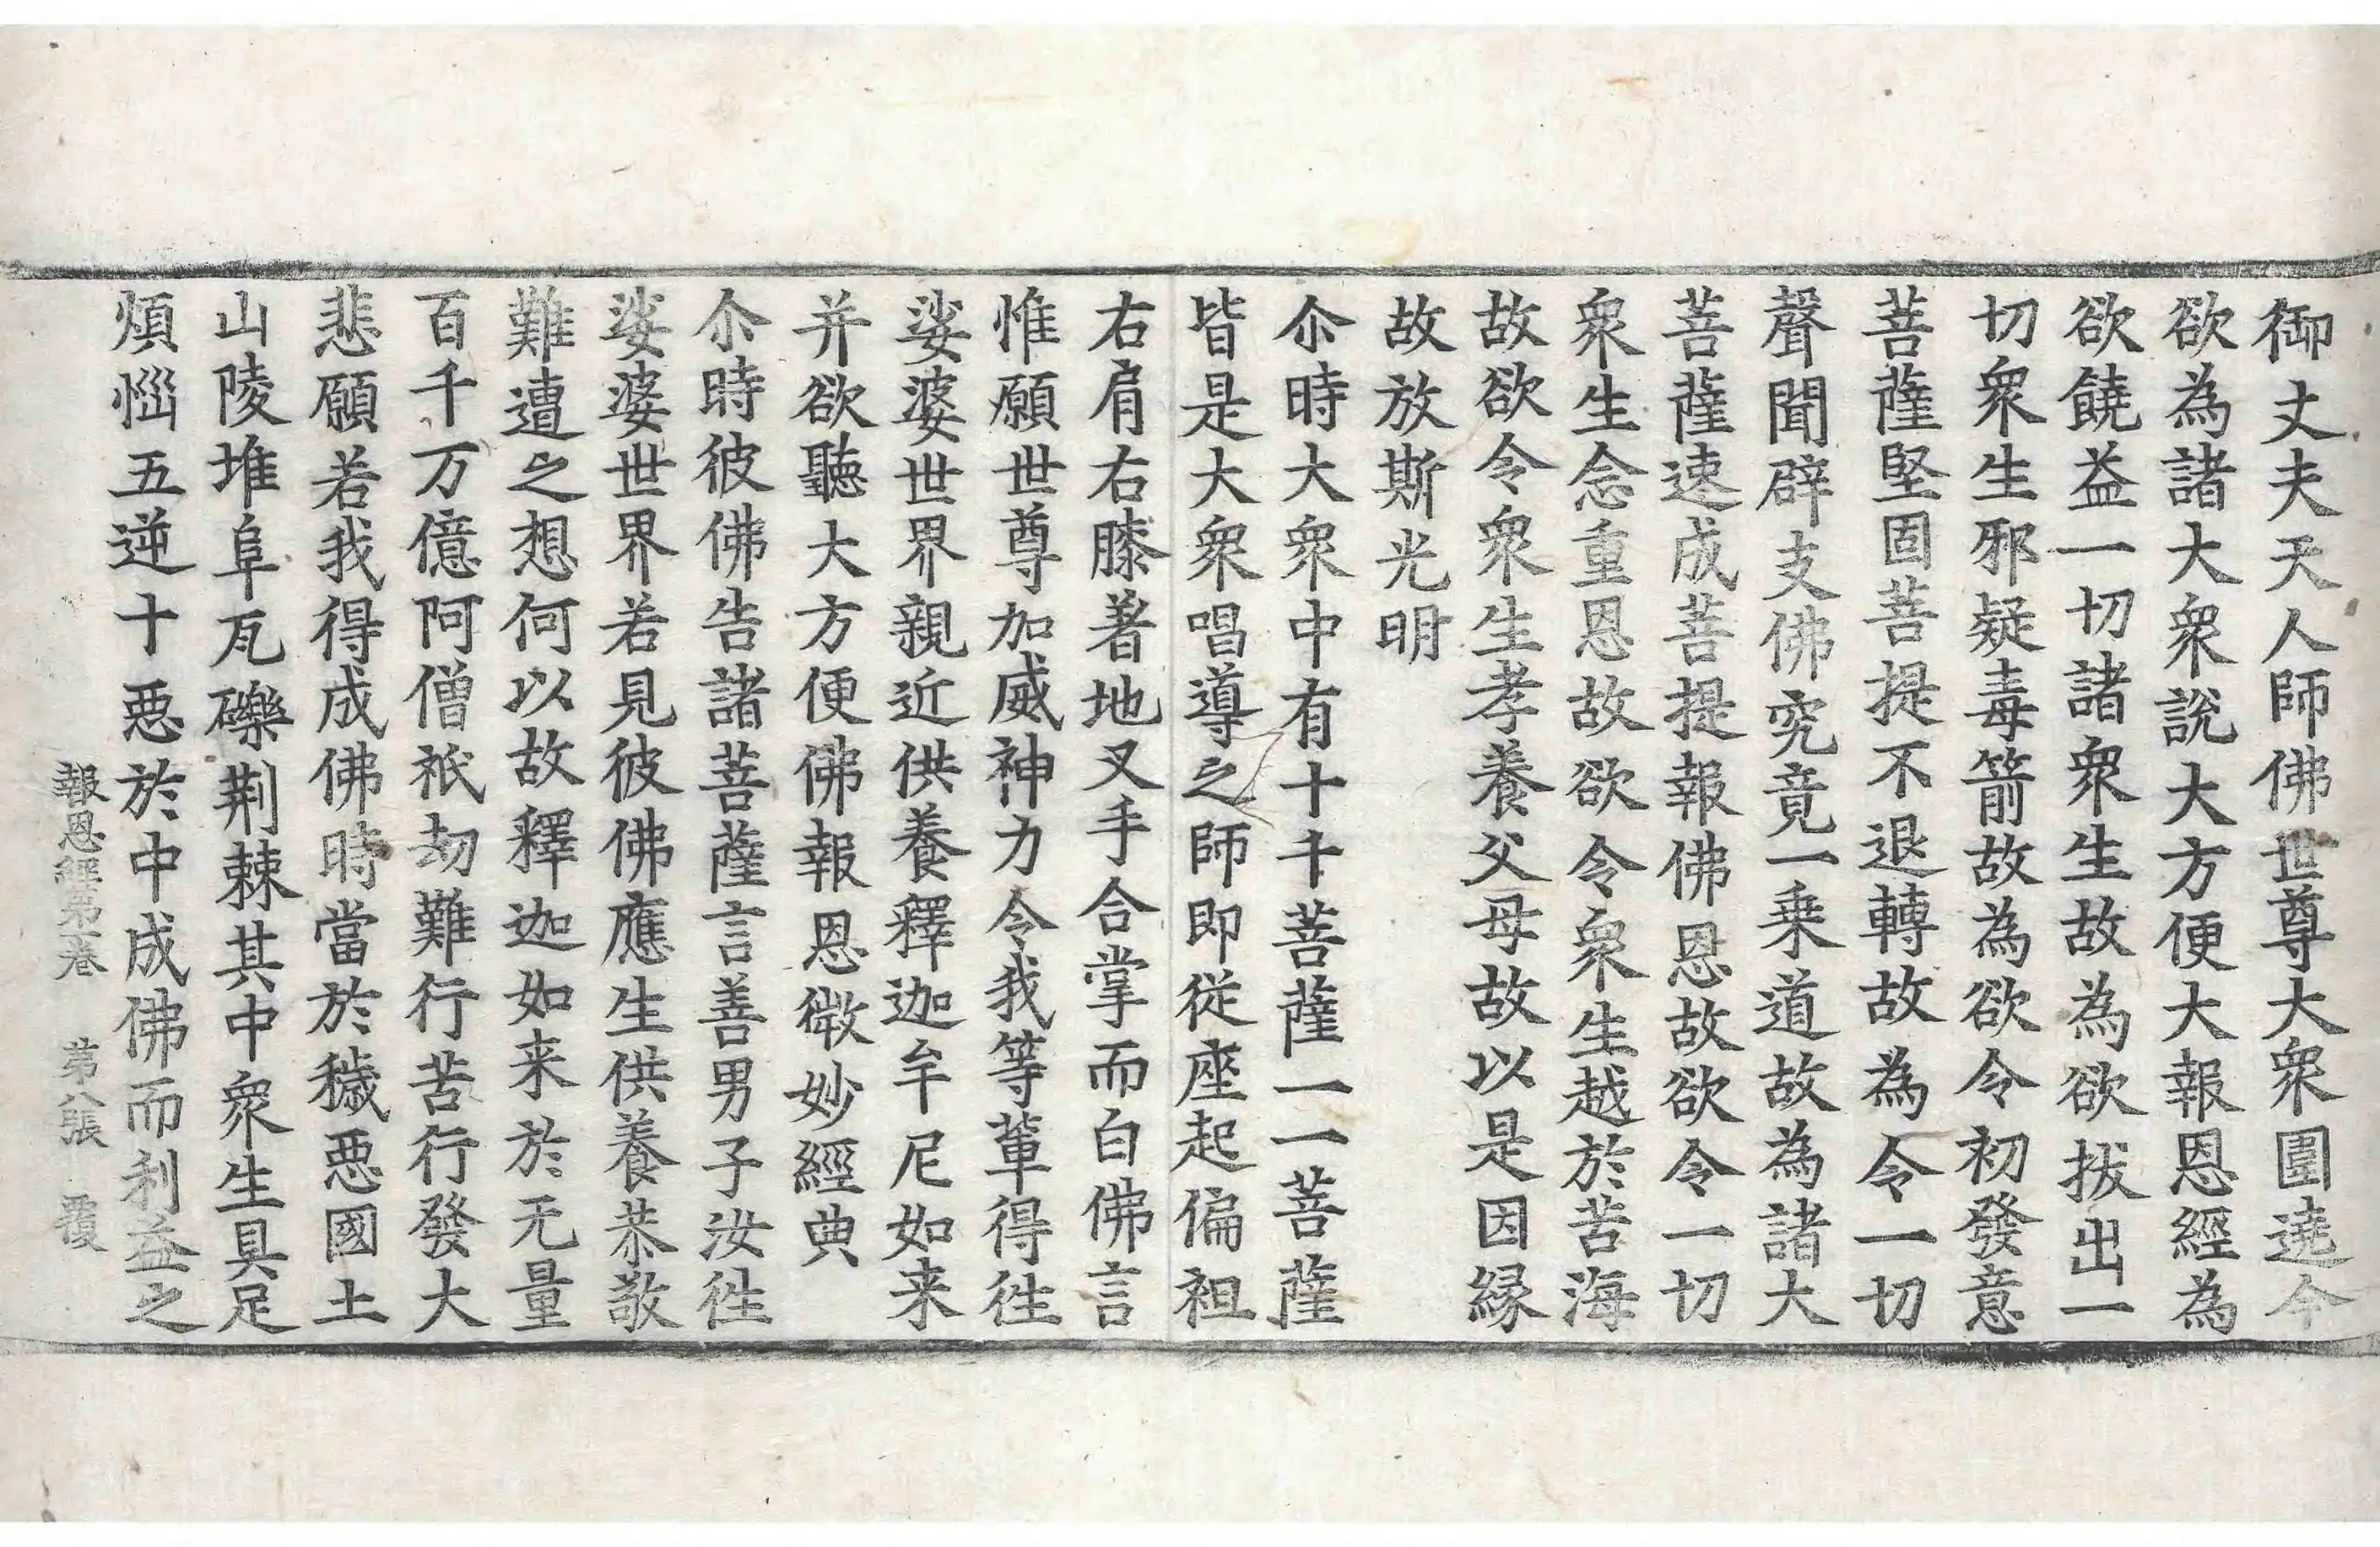 御丈夫天人師佛世尊大衆圍遶今
欲為諸大衆說大方便大報恩經為
欲饒益一切諸衆生故為欲拔出一
切衆生邪疑毒箭故為欲令初發意
菩薩堅固菩提不退轉故為令一切
聲聞辟支佛究竟一乗道故為諸大
菩薩速成菩提報佛恩故欲令一切
衆生念重恩故欲令衆生越於苦海
故欲令衆生孝養父母故以是因縁
故放斯光明
尒時大衆中有十千菩薩一一菩薩
皆是大衆唱導之師即従座起偏袒
右肩右膝著地叉手合掌而白佛言
惟願世尊加威神力令我等輩得徃
娑婆世界親近供養釋迦牟尼如来
并欲聽大方便佛報恩微妙經典
尒時彼佛告諸菩薩言善男子汝徃
娑婆世界若見彼佛應生供養恭敬
難遭之想何以故釋迦如来於无量
百千万億阿僧祇劫難行苦行發大
悲願若我得成佛時當於穢惡國土
山陵堆阜瓦礫荆棘其中衆生具足
煩惱五逆十惡於中成佛而利益之
報恩經第一卷 第八張 覆